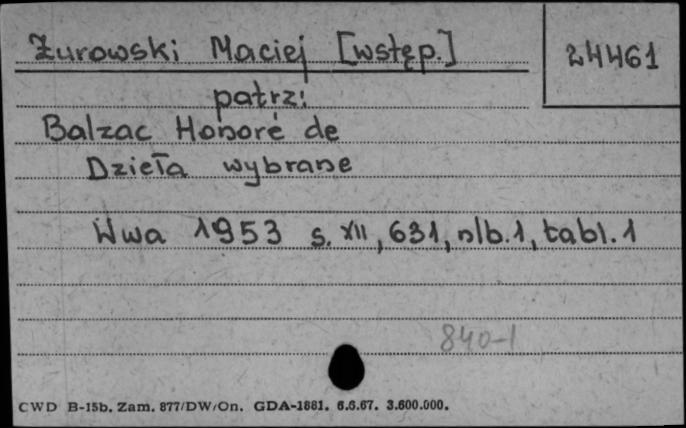 Żurowski Maciej [wstęp.]
24461
patrz:
Balzac Honoré de
Dzieła wybrane
Wwa 1953 s. XII, 631, nlb. 1, tabl. 1
840-1
CWD B-15b. Zam. 877/DW/On. GDA-1881. 6.6.67. 3.600.000.